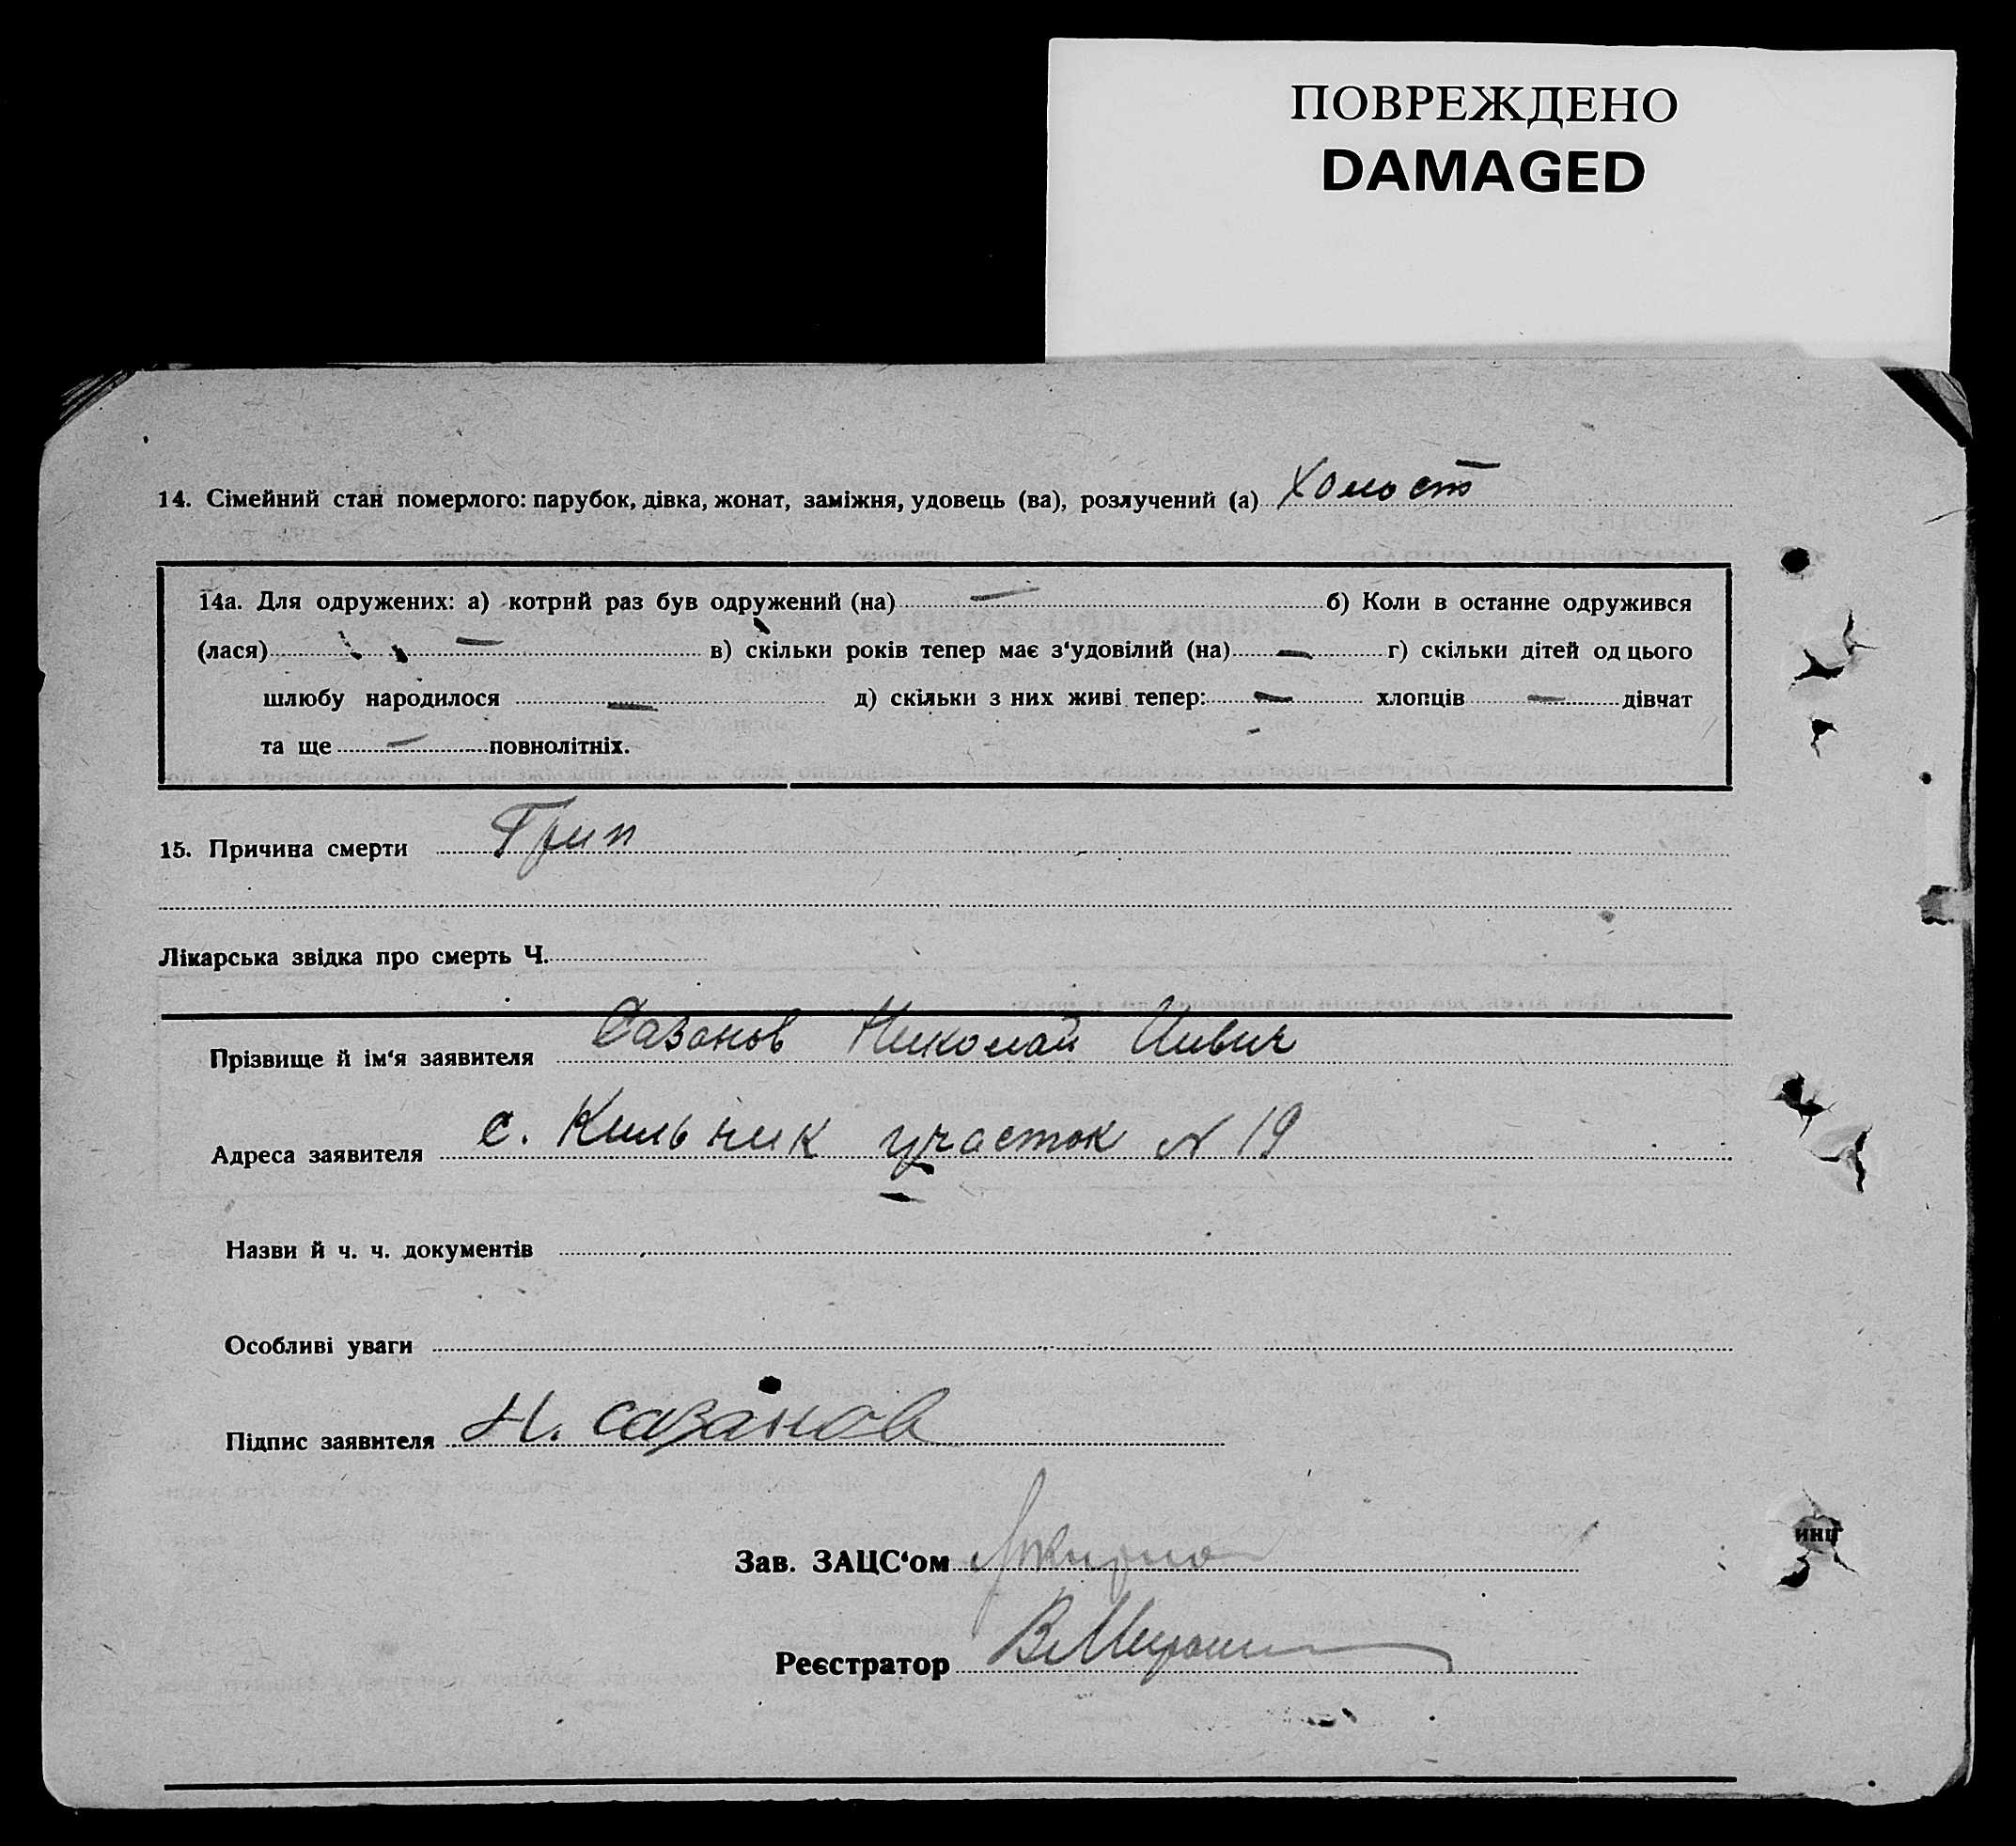 ПОВРЕЖДЕНО
DAMAGED
14. Сімейний стан померлого: парубок, дівка, жонат, заміжня, удовець (ва), розлучений (а) холост
14а. Для одружених: а) котрий раз був одружений (на) — б) Коли в останнє одружився
(лася) — в) скільки років тепер має з‘удовілий (на) — г) скільки дітей од цього
шлюбу народилося — д) скільки з них живі тепер: — хлопців — дівчат
та ще — повнолітніх.
15. Причина смерти Грип
Лікарська звідка про смерть Ч.
Прізвище й ім‘я заявителя Сазонов Николай
Адреса заявителя с. Кильчик участок N 19
Назви й ч. ч. документів
Особливі уваги
Підпис заявителя Н. Сазанов
Зав. ЗАЦС‘ом
Реєстратор
инц